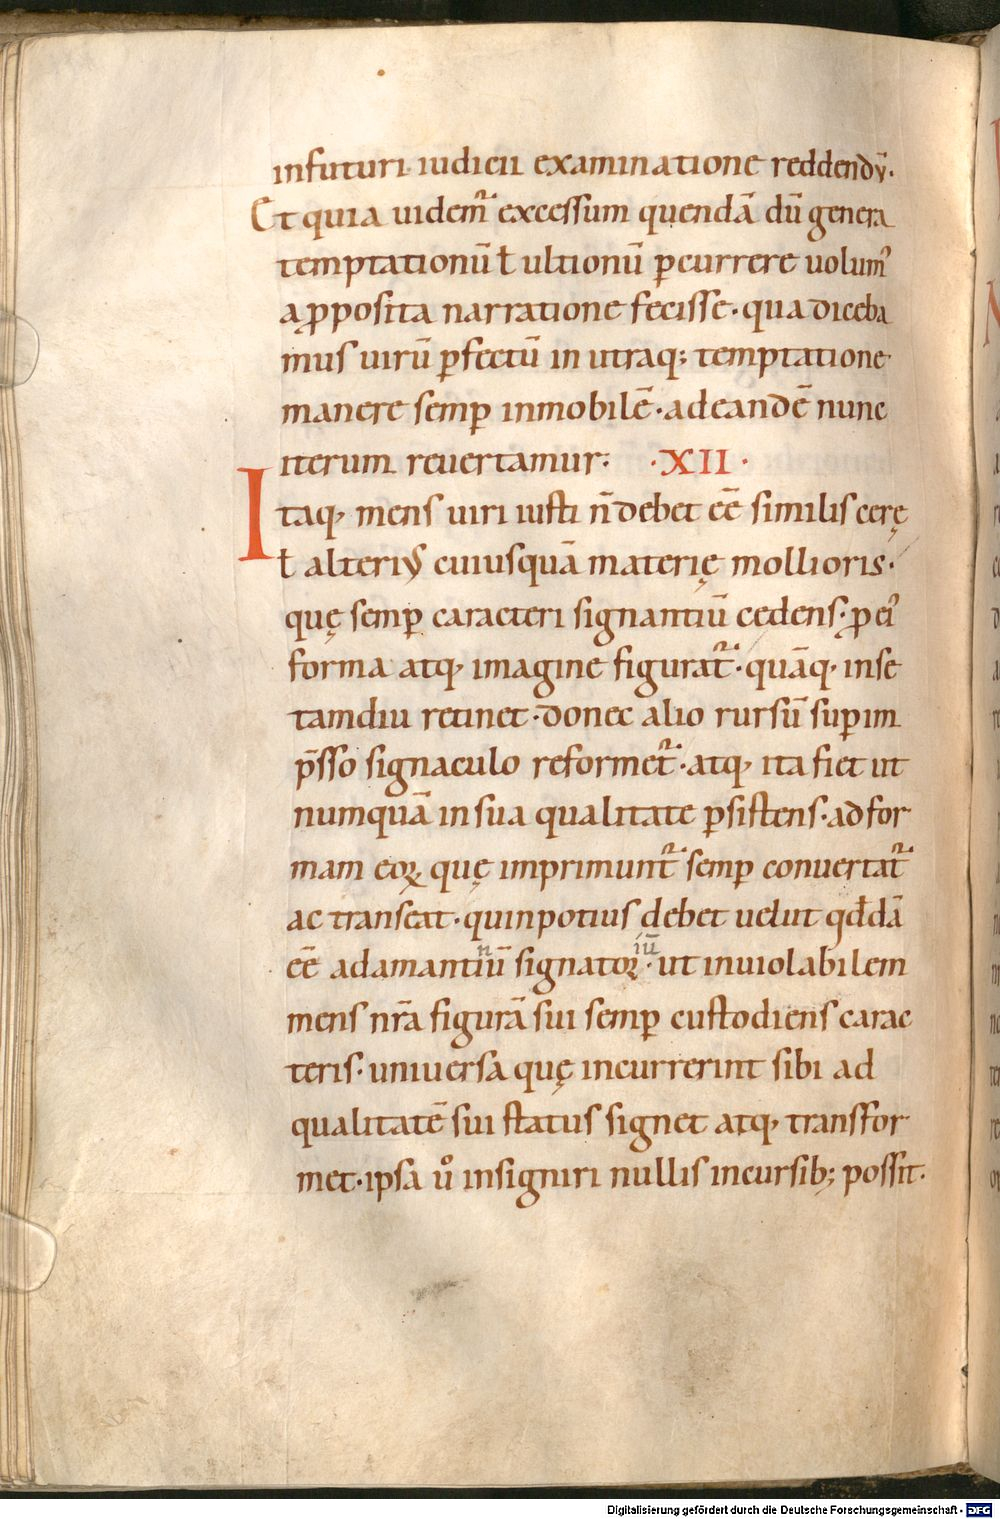 infuturi iudicii examinatione reddendũ.
Et quia uidem̃ excessum quendã dũ genera
temptationũ ł ultionũ ꝑcurrere uolum᾽
a ꝓposita narratione fecisse · qua diceba
mus uirũ ꝑfectũ in utraq; temptatione
manere semꝑ inmobilẽ · ad eandẽ nunc
iterum reuertamur: · XII ·
Itaq; mens uiri iusti ñ debet eẽ similis cerę
ł alteri᾽ cuiusquã materię mollioris.
quę semꝑ caracteri signantiũ cedens · ꝓ ei᾽
forma atq; imagine figurat̃ · quãq; inse
tamdiu retinet · donec alio rursũ suꝑim
p̃sso signaculo reformet̃ · atq; ita fiet ut
numquã in sua qualitate ꝑsistens · ad for
mam eoꝝ quę imprimunt̃ semꝑ conuertat̃
ac transeat · quin potius debet uelut qđdã
eẽ adamantiũ signatoꝝ · ut inuiolabilem
n iũ
mens nr̃a figurã sui semꝑ custodiens carac
teris · uniuersa quę incurrerint sibi ad
qualitatẽ sui status signet atq; transfor
met · ipsa uͦ insigniri nullis incursib; possit.
Digitalisierung gefördert durch die Deutsche Forschungsgemeinschaft - DFG